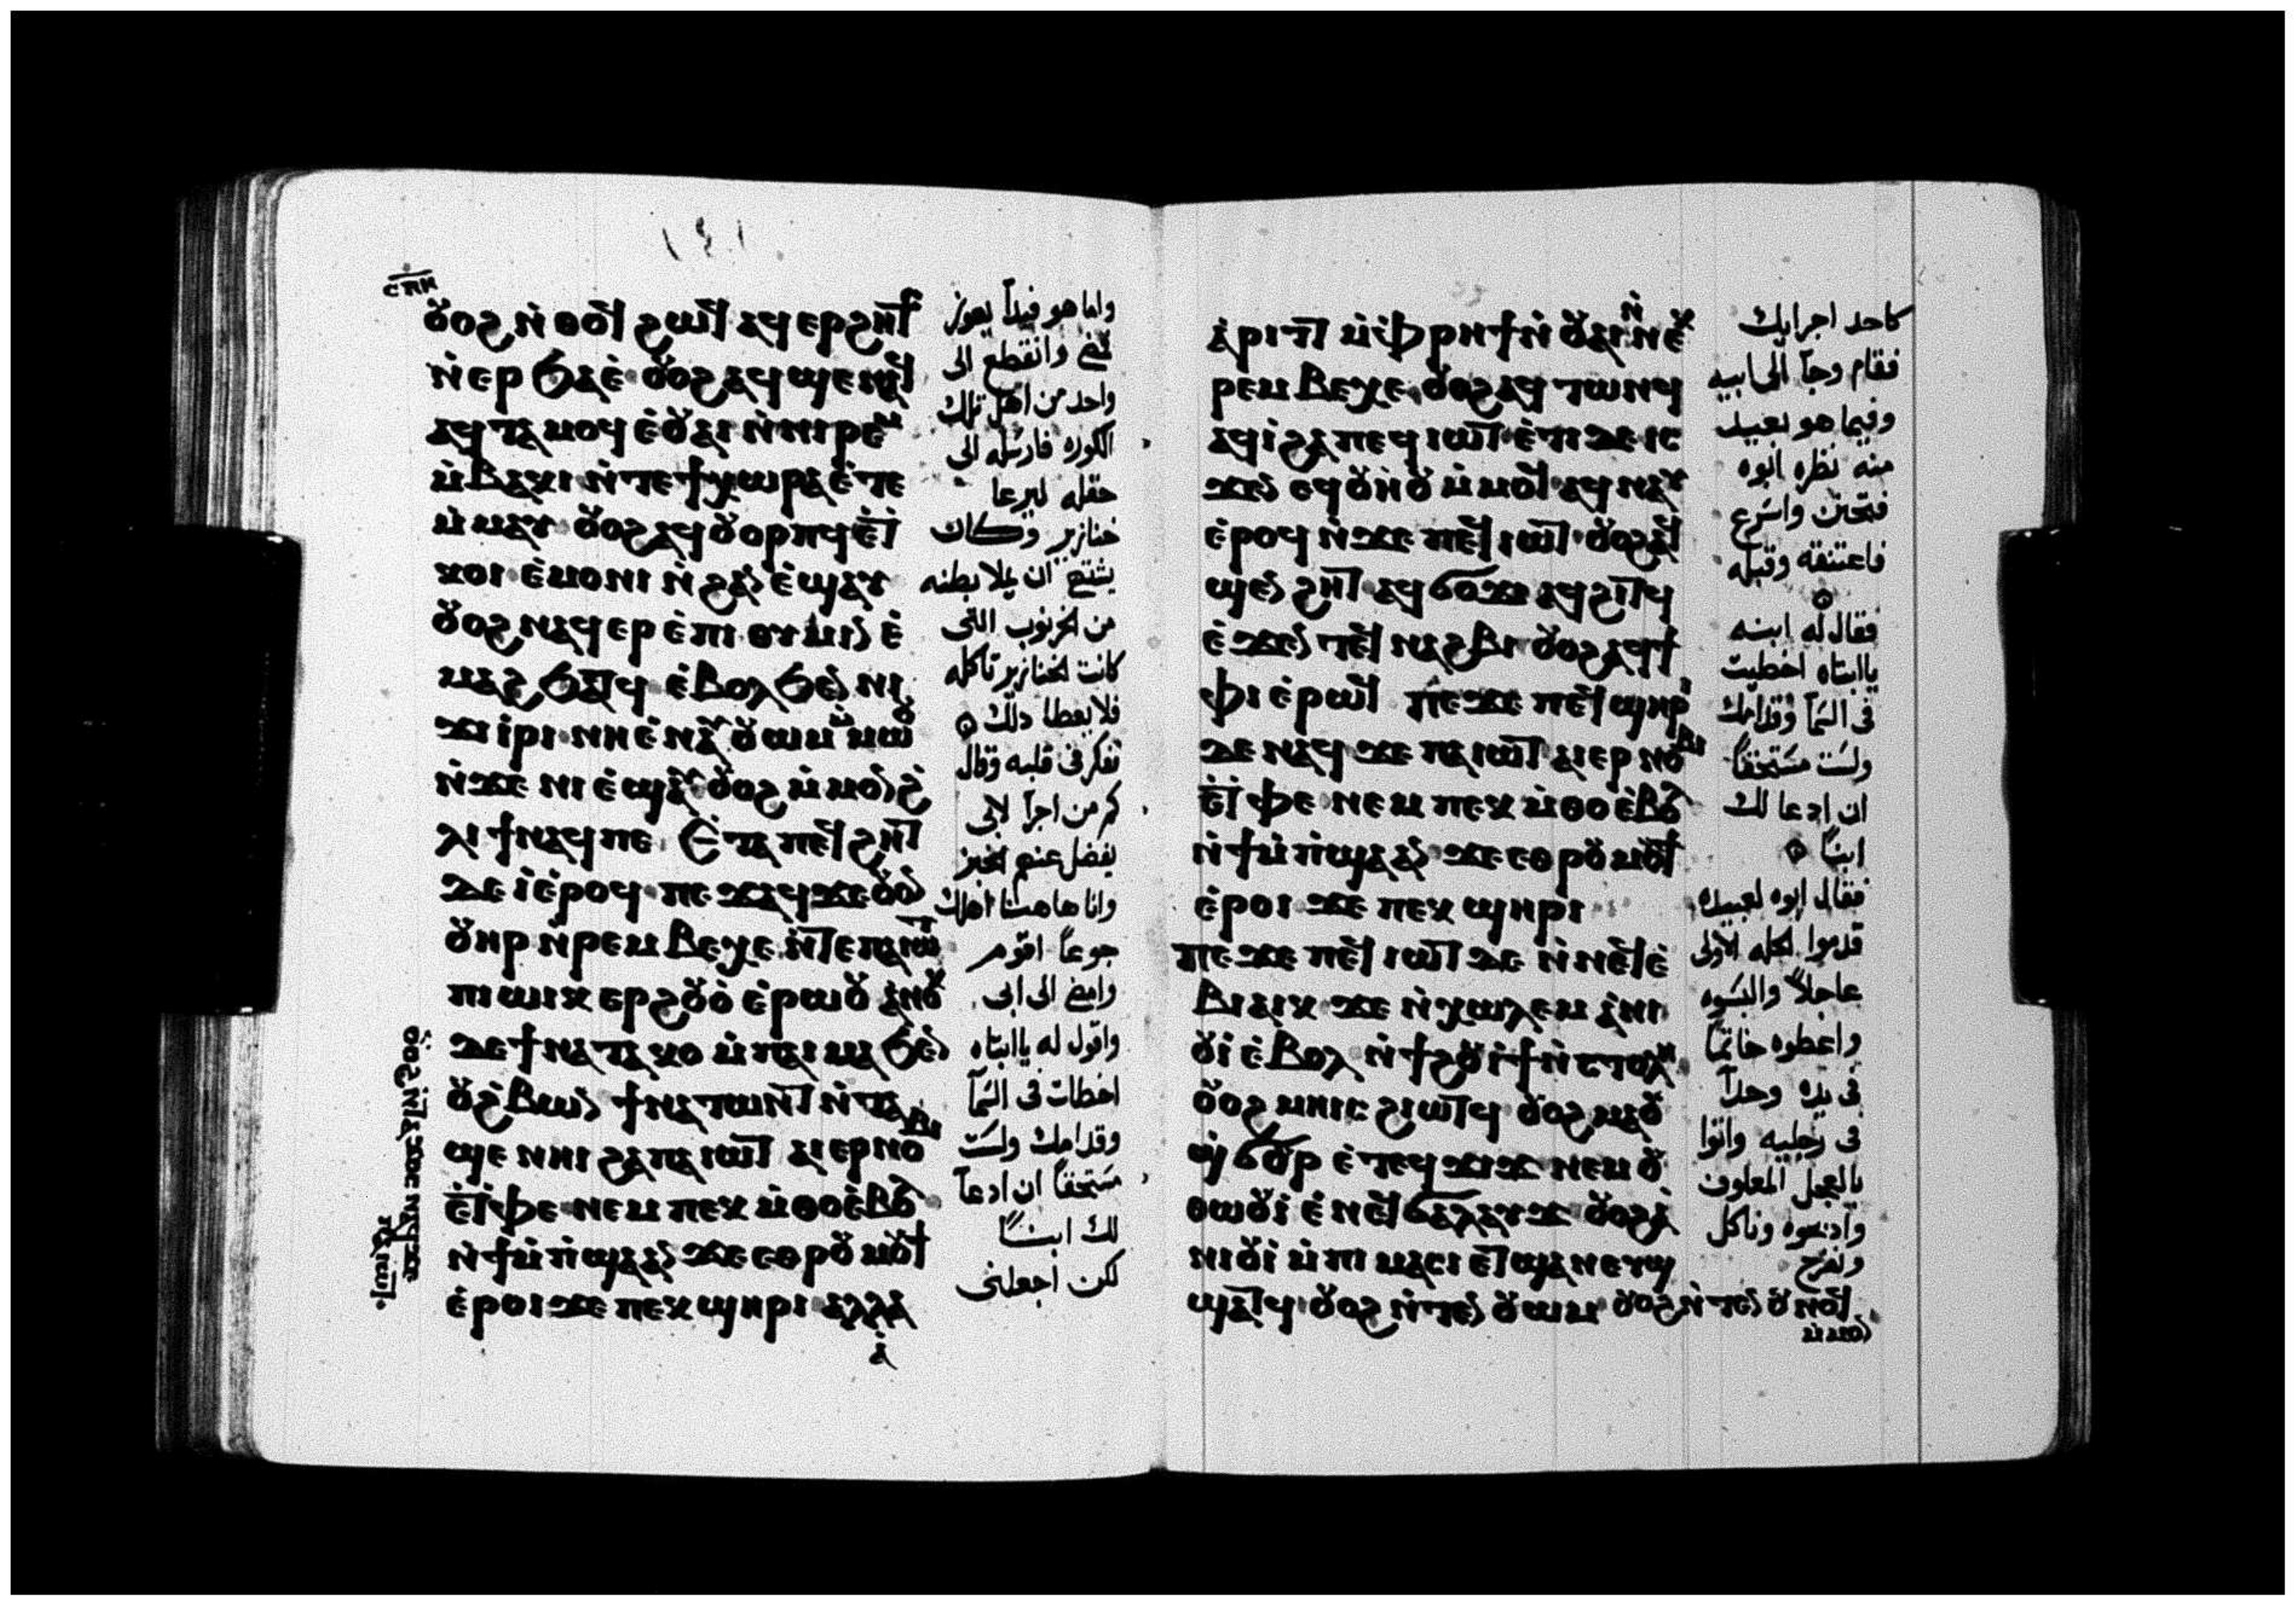 ⲥⲡⲏ
١٤١
ⲟⲩⲟϩ ⲛ̀ⲑⲟϥ ϩⲱϥ ⲁϥⲉⲣϩⲏⲧⲥ
ⲛ̀ⲉⲣϧⲁⲉ̀ ⲟⲩⲟϩ ⲁϥϣⲉⲛⲁϥ
ⲁϥⲧⲁⲙⲟϥ ⲉ̀ⲟⲩⲁⲓ ⲛ̀ⲛⲓⲣⲉⲙ
ⲙ̀ⲃⲁⲕⲓ ⲛ̀ⲧⲉϯⲭⲱⲣⲁ ⲉ̀ⲧⲉ
ⲙ̀ⲙⲁⲩ ⲟⲩⲟϩ ⲁϥⲟⲩⲟⲣⲡϥ ⲉ̀ⲧⲉϥ
ⲕⲟⲓ ⲉ̀ⲙⲟⲛⲓ ⲛ̀ϩⲁⲛⲉ̀ϣⲁⲩ
ⲟⲩⲟϩ ⲛⲁϥⲉⲣⲉ̀ⲡⲓⲑⲩⲙⲓⲛ ⲉ̀
ⲙⲁϩ ϧⲁⲧϥ ⲉ̀ⲃⲟⲗϧⲉⲛ ⲛⲓ
ϫⲓⲣⲓ ⲛⲏⲉ̀ⲛⲁⲩ ⲟⲩⲱⲙ ⲙ̀ⲙⲱⲟⲩ
ⲛ̀ϫⲉ ⲛⲓⲉ̀ϣⲁⲩ ⲟⲩⲟϩ ⲙ̀ⲙⲟⲛϩ̀
ⲗⲓ ϯⲛⲁϥⲡⲉ ⲉ̀ⲧⲁ ⲡⲉϥϩⲏⲧ
ⲇⲉ ⲓ̀ⲉ̀ⲣⲟϥ ⲡⲉϫⲁϥ ϫⲉ ⲟⲩⲟⲛ
ⲟⲩⲏⲣ ⲛ̀ⲣⲉⲙⲃⲉⲭⲉ ⲛ̀ⲧⲉⲡⲁⲓⲱⲧ
ⲡⲓⲱⲓⲕ ⲉⲣϩⲟⲩⲟ̀ ⲉ̀ⲣⲱⲟⲩ ⲁ̀ⲛⲟⲕ
ⲇⲉ ϯⲛⲁⲧⲁⲕⲟ ⲙ̀ⲡⲁⲓⲙⲁ ϧⲉⲛ
ⲟⲩϩ̀ⲃⲱⲛ ϯⲛⲁⲧⲱⲛⲧ ⲛ̀ⲧⲁ
ϣⲉ ⲛⲏⲓ ϩⲁ ⲡⲁⲓⲱⲧ ⲁⲓⲉⲣⲛⲟⲃⲓ
ⲉ̀ⲧⲫⲉ ⲛⲉⲙ ⲡⲉⲕⲙ̀ⲑⲟ ⲉ̀ⲃⲟⲗ
ⲛ̀ϯⲙ̀ⲡ̀ϣⲁ ⲁⲛ ϫⲉ ⲉⲑⲣⲟⲩⲙⲟⲩϯ
ⲉ̀ⲣⲟⲓ ϫⲉ ⲡⲉⲕϣⲏⲣⲓ ⲁⲗⲗⲁ
ⲁ̀
ⲟⲩⲟϩ ⲛ̀ⲧⲁϫⲟⲥ ⲛⲁϥ ϫⲉ
ⲡⲁⲓⲱⲧ
واما هو فبدأ يعوز
فمضى وانقطع الى
واحد من اهل تلك
الكوره فارسله الى
حقله ليرعا
خنازير وكان
يشتهى ان يملا بطنه
من الخرنوب التى
كانت الخنازير تاكله
فلا يعطا ذلك
تفكر فى قلبه وقال
كم من اجرآ لابى
يفضل عنهم الخبز
وانا هاهنا اهلك
جوعاً اقوم
وامضى الى ابى
واقول له ياابتاه
اخطات فى السمآ
وقدامك ولست
مستحقاً ان ادعآ
لك ابنـاً
لكن اجعلنى
ⲁ̀ⲣⲓⲧ ⲙ̀ⲫⲣⲏϯ ⲛ̀ⲟⲩⲁⲓ ⲛ̀ⲛⲉⲕ
ⲣⲉⲙⲃⲉⲭⲉ ⲟⲩⲟϩ ⲁϥⲧⲱⲛϥ
ⲁϥⲓ̀ ϩⲁ ⲡⲉϥⲓⲱⲧ ⲉ̀ⲧⲓ ⲇⲉ ⲓⲥ
ϫⲉⲛ ⲉϥⲟⲩⲏⲟⲩ ⲙ̀ⲙⲟϥ ⲁϥⲛⲁⲩ
ⲉ̀ⲣⲟϥ ⲛ̀ϫⲉ ⲡⲉϥⲓⲱⲧ ⲟⲩⲟϩ ⲁϥ
ϣⲉⲛϩⲏⲧ ⲁϥϭⲟϫⲓ ⲁϥϩⲓⲧϥ
ⲉ̀ϫⲉⲛ ⲧⲉϥⲛⲁϩⲃⲓ ⲟⲩⲟϩ ⲁϥϯ
ⲫⲓ ⲉ̀ⲣⲱϥ ⲡⲉϫⲉ ⲡⲉϥϣⲏⲣⲓ
ⲇⲉ ⲛⲁϥ ϫⲉ ⲡⲁⲓⲱⲧ ⲁⲓⲉⲣⲛⲟⲃⲓ
ⲉ̀ⲧⲫⲉ ⲛⲉⲙ ⲡⲉⲕⲙ̀ⲑⲟ ⲉ̀ⲃⲟⲗ
ⲛ̀ϯⲙ̀ⲡ̀ϣⲁ ⲁⲛ ϫⲉ ⲉⲑⲣⲟⲩⲙⲟⲩϯ
ⲉ̀ⲣⲟⲓ ϫⲉ ⲡⲉⲕϣⲏⲣⲓ
ⲡⲉϫⲉ ⲡⲉϥⲓⲱⲧ ⲇⲉ ⲛ̀ⲛⲉϥⲉ̀
ⲃⲓⲁⲓⲕ ϫⲉ ⲛ̀ⲭⲱⲗⲉⲙ ⲁ̀ⲛⲓ
ⲟⲩⲓ̀ ⲉ̀ⲃⲟⲗ ⲛ̀ϯϩⲟⲩⲓ̀ϯ ⲛ̀ⲥⲧⲟⲗⲏ
ⲟⲩⲟϩ ⲙⲏⲓⲥ ϩⲓⲱⲧϥ ⲟⲩⲟϩ ⲙⲁⲟⲩ
ϣ̀ϭⲟⲩⲣ ⲉ̀ⲧⲉϥϫⲓϫ ⲛⲉⲙ ⲟⲩ
ⲑⲱⲟⲩⲓ̀ ⲉ̀ⲛⲉϥϭⲁⲗⲁⲩϫ ⲟⲩⲟϩ ⲁ̀
ⲛⲓⲟⲩⲓ̀ ⲙ̀ⲡⲓⲙⲁⲥⲓ ⲉⲧϣⲁⲛⲉⲩϣ
ϣⲁⲧϥ ⲟⲩⲟϩ ⲛ̀ⲧⲉⲛⲟⲩⲱⲙ ⲟⲩⲟϩ ⲛ̀ⲧⲉⲛⲟⲩⲛⲟϥ
ⲙ̀ⲙⲟⲛ
كاحد اجرايك
فقام وجآ الى ابيه
وفيما هو بعيد
منه نظره ابوه
فتحنن واسرع
فاعتنقه وقبله
فقال له ابنه
ياابتاه اخطيت
فى السمآ وقدامك
ولست مستحقاً
ان ادعا لك
ابنـاً
فقال ابوه لعبيده
قدموا الحله الاولى
عاجلاً والبسوه
واعطوه خاتماً
فى يده وحذآ
فى رجليه واتوا
بالعجل المعلوف
واذبحوه وناكل
ونفرح